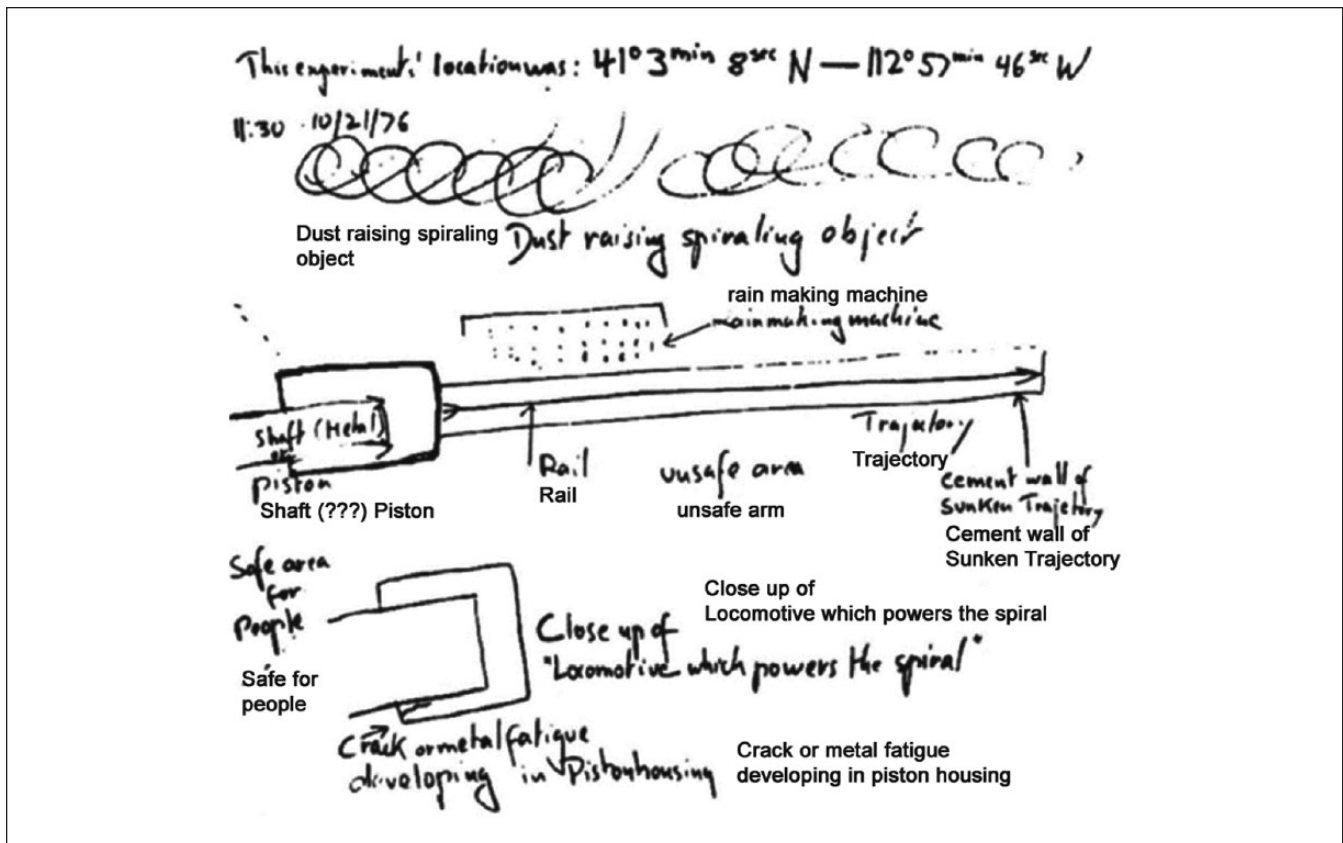 This experiments' location was: 41° 3 min 8 sec N — 112° 57 min 46 sec W
11:30 10/21/76
Dust raising spiraling
object
Dust raising spiraling object
rain making machine
mainmaking machine
Shaft (Metal)
or
piston
Shaft (???) Piston
Rail
Rail
unsafe area
unsafe arm
Trajectory
Trajectory
cement wall of
Sunken Trajetory
Cement wall of
Sunken Trajectory
Safe area
for
People
Safe for
people
Close up of
Locomotive which powers the spiral
Close up of
"Locomotive which powers the spiral"
Crack or metal fatigue
developing in Pistonhousing
Crack or metal fatigue
developing in piston housing